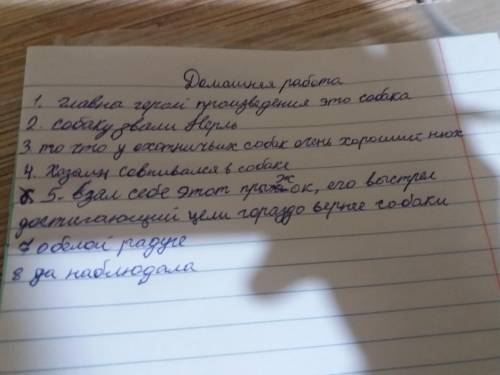 Домашняя работа
1. главна герой произведения это собака
2. собаку звали Нерль
3. то что у охотничьих собак очень хороший нюх
4. Хозаин совпивался в собаке
5. взял себе этот прыжок, его выстрел
достигающий цели гораздо вернее собаки
7 о белой радуге
8 да наблюдала